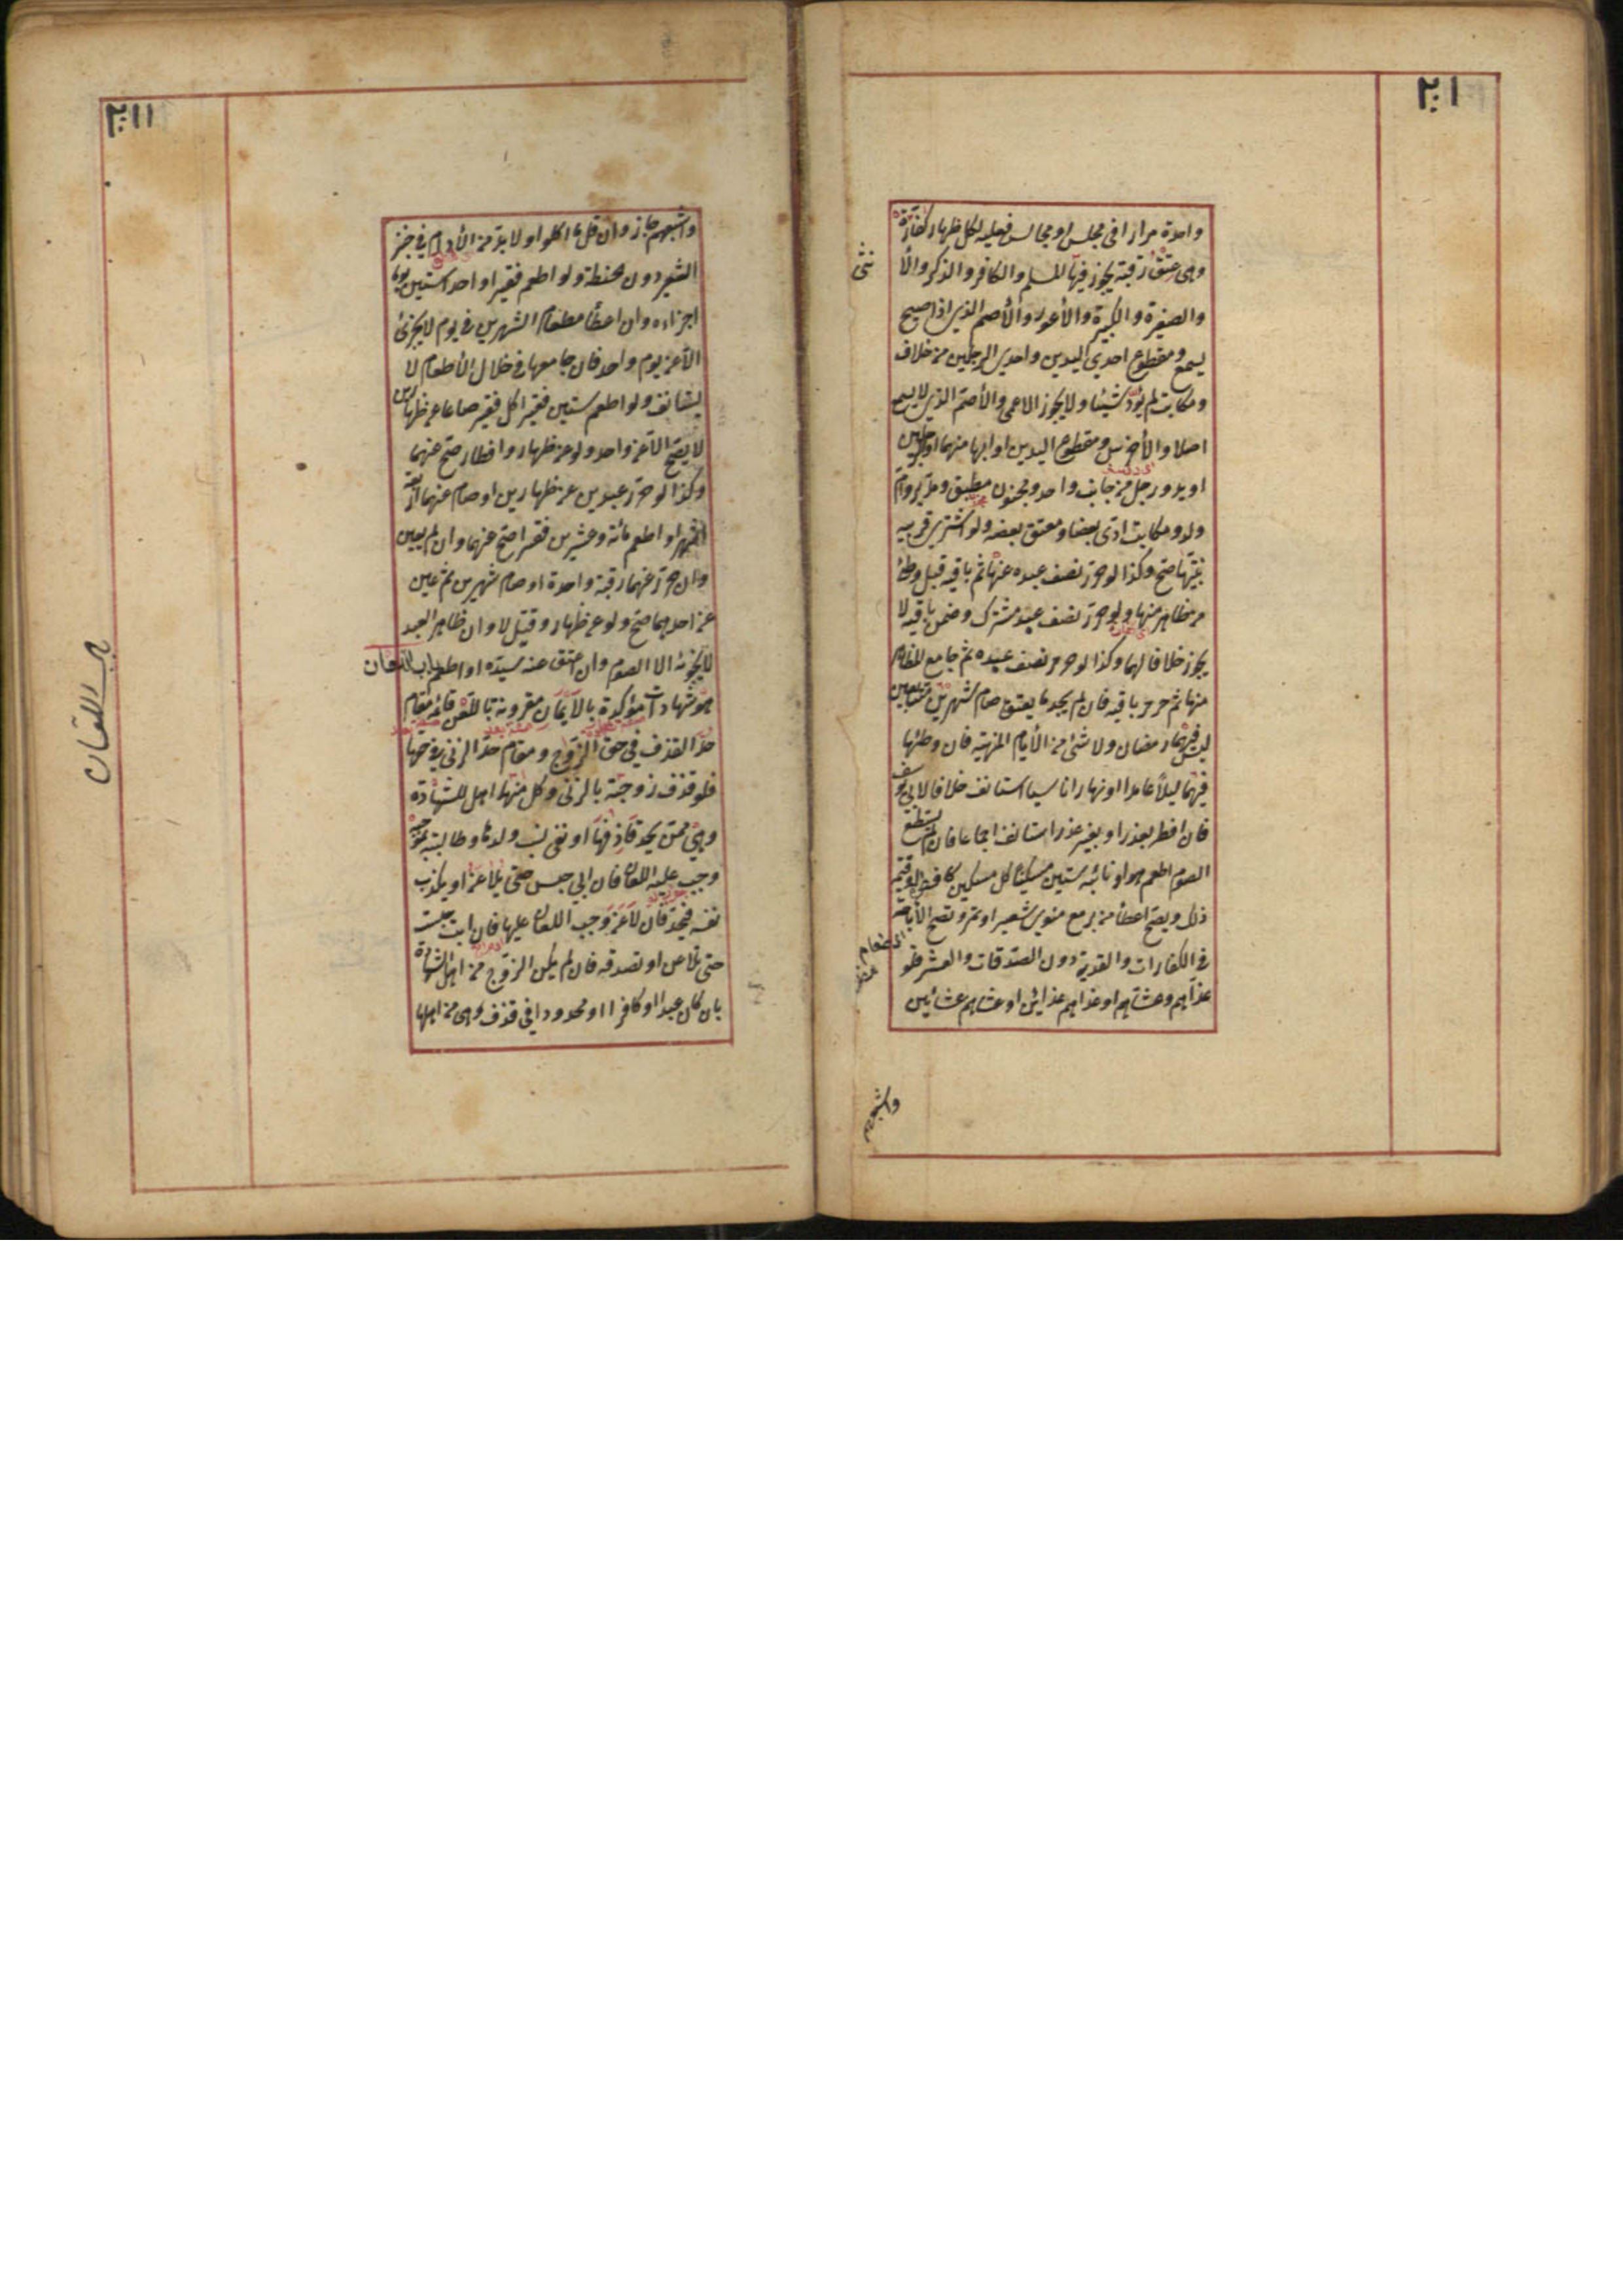 ٢٠١
واحدة مرارا فى مجلس او مجالس فعليه لكل ظهار كفارة
وهى عتق رقبة يجوز فيها المسلم والكافر والذكر والأ
نثى
والصغيرة والكبيرة والأعور والأصم الذى اذا صيح
يسمع ومقطوع احدى اليدين واحدى الرجلين من خلاف
ومكاتب لم يؤد شيئا ولا يجوز الاعمى والأصم الذى لا يسمع
اصلا والأخرس ومقطوع اليدين او ابهامهما او الرجلين
او يد ورجل من جانب واحد ومجنون مطبق ومدبر وام
ولد ومكاتب ادى بعضا ومعتق بعضه ولو اشترى قريبه
بنيتها صح وكذا لو حرر نصف عبده عنها ثم باقيه قبل وطئ
من ظاهر منها ولو حرر نصف عبد مشترك وضمن باقيه لا
يجوز خلافا لهما وكذا لو حرر نصف عبده ثم جامع المظاهر
منها ثم حرر باقيه فان لم يجد ما يعتق صام شهرين متتابعين
ليس فيهما رمضان ولا شئ من الأيام المنهية فان وطئها
فيهما ليلا عامدا او نهارا ناسيا استانف خلافا لابى يوسف
فان افطر بعذر او بغير عذر استانف اجماعا فان لم يستطع
الصوم اطعم هو او نائبه ستين مسكينا كل مسكين كالفطرة او قيمة
ذلك ويصح اعطأ من بر مع منوى شعير او تمر وتصح الأباحة
فى الكفارات والفدية دون الصدقات والعشر فلو
غذاهم وعشاهم او غذاهم غذائين او عشاهم عشائين
واشبعهم
٢٠١١
واشبعهم جاز وان قل ما اكلوا ولا بد من الأدام فى خبز
الشعير دون الحنطة ولو اطعم فقيرا واحدا ستين يوما
اجزاءه وان اعطأ مطعام الشهرين فى يوم لا يجزئ
الا عن يوم واحد فان جامعها فى خلال الأطعام لا
يستانف ولو اطعم ستين فقيرا كل فقير صاعا عن ظهارين
لا يصح الا عن واحد ولو عن ظهار وافطار صح عنهما
وكذا لو حرر عبدين عن ظهارين او صام عنهما اربعة
اشهر او اطعم مائة وعشرين فقيرا صح عنهما وان لم يعين
وان حرر عنهما رقبة واحدة او صام شهرين ثم عين
عن احدهما صح ولو عن ظهار وقتل لا وان ظاهر العبد
لا يجزئه الا الصوم وان اعتق عنه سيده او اطعم باب اللعان
هو شهادات مؤكدة بالأيمان مقرونة باللعن قائمة مقام
حد القذف فى حق الزوج ومقام حد الزنى فى حقها
فلو قذف زوجته بالزنى وكل منهما اهل للشهادة
وهى ممن يحد قاذفها او نفى نسب ولدها وطالبته بموجبه
وجب عليه اللعان فان ابى حبس حتى يلاعن او يكذب
نفسه فيحد فان لاعن وجب اللعان عليها فان ابت حبست
حتى تلاعن او تصدقه فان لم يكن الزوج من اهل الشهادة
بان كان عبدا او كافرا او محدودا فى قذف وهى من اهلها
باب اللعان